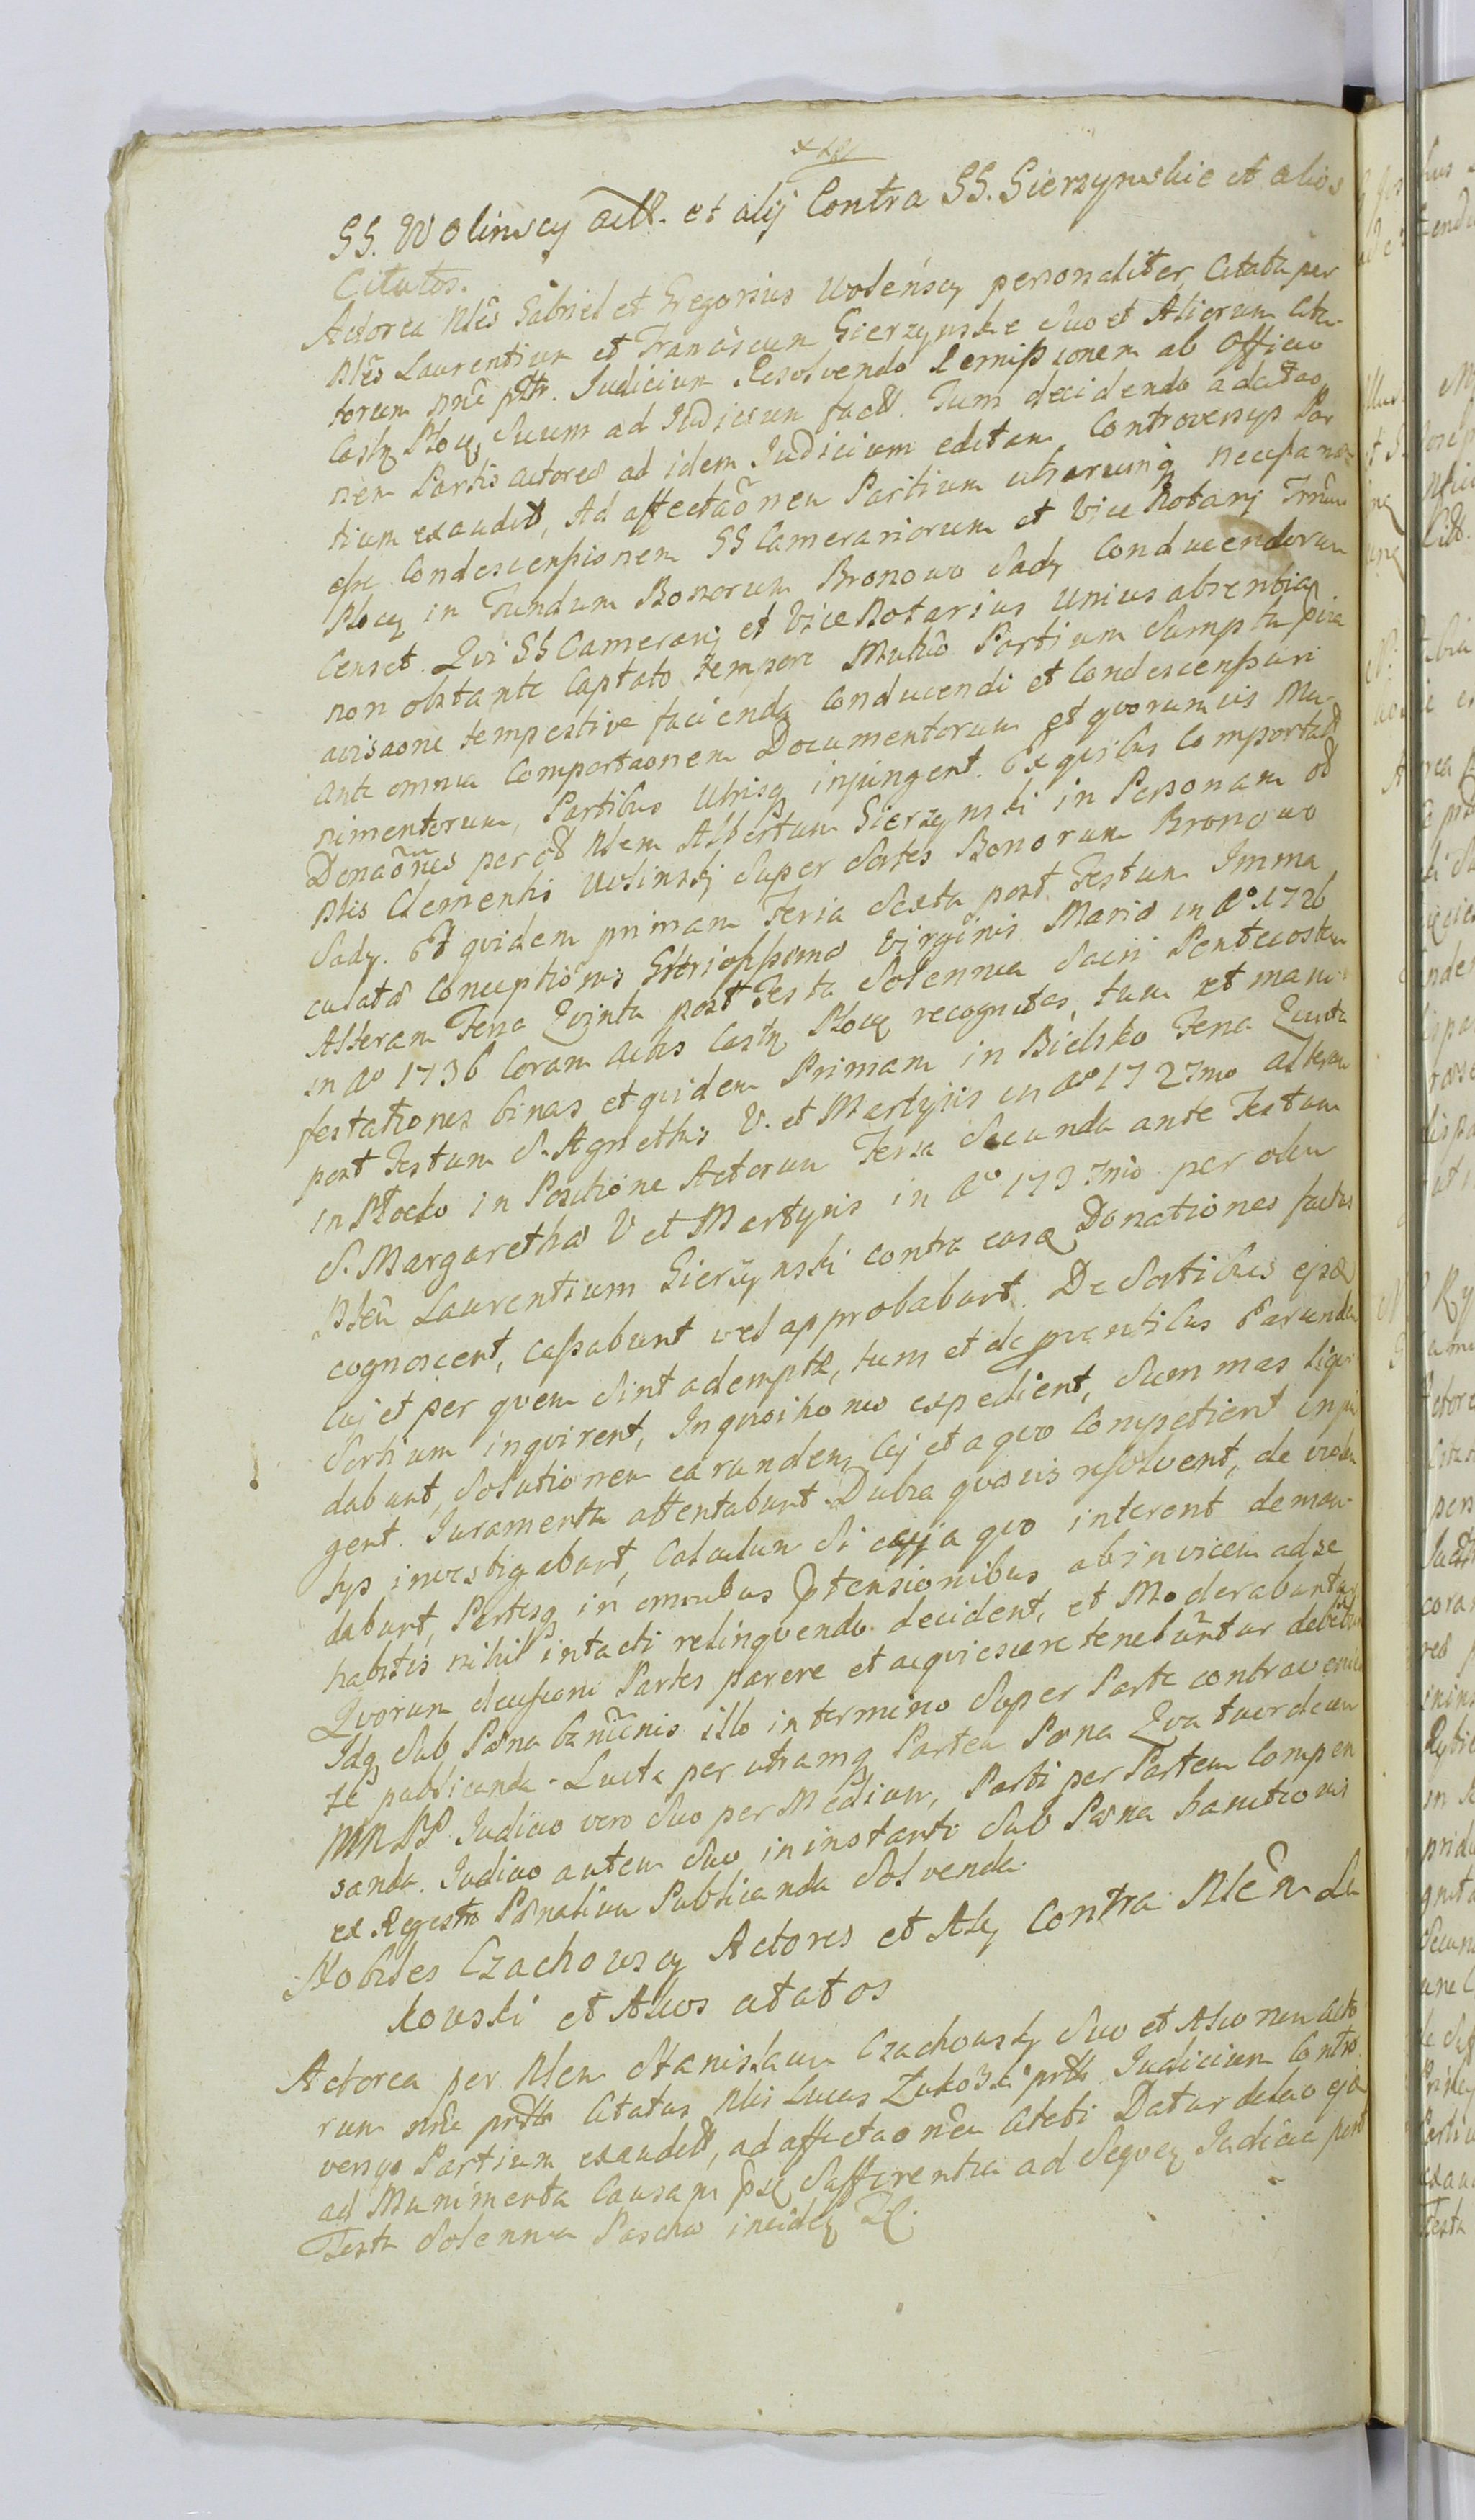 GG. Wolinscy Actt. et alij Contra GG. Gierzynskie et alios
Citatos.
Actorea Nlēs Gabriel et Gregorius Wolenscy personaliter, Citata per
Nlēs Laurentium et Franciscum Gierzynskie Suo et Aliorum Cita-
torum nnē pttr. Judicium Resolvendo Remissionem ab Officio
Castr Plocq Suum ad Judicium factt. Tum decidendo adcitao
nem Partis Actoreæ ad idem Judicium editam, Controversijs Par
tium exauditt, Ad affectaõnem Partium utrarumq necessariã
esse Condescensionem GG Camerariorum et Vice Notarij Trrũm
Plocq in Fundum Bonorum Bronowo Sady Conducendorum
Censet. Qui GG Camerarij et Vice Notarius Unius absentia
non obstante Captato tempore Mutuo Partium Sumptu pvia
avisaone tempestive facienda Conducendi et Condescensuri
ante omnia Comportaonem Documentorum et quorumvis Mu-
nimentorum, Partibus Utrisq injungent. Ex quibus Comportatt
Donaõnes per ott Nlem Albertum Gierzynski in Personam ott
Nlis Clementis Wolinskj Super Sortes Bonorum Bronowo
Sady. Et quidem primam Feria Sexta post Festum Imma
culatæ Conceptionis Gloriosissimæ Virginis Mariæ in Aº 1726
Alteram Feria Quinta post Festa Solennia Sacri Pentecostes
in Aº 1736 Coram Actis Castr Plocq recognitas, tum et mani-
festationes binas et quidem Primam in Bielsko Feria Quinta
post Festum S. Agnethis V. et Martyris in Aº 1727mo alteram
in Plocko in Positione Actorum Feria Secunda ante Festum
S. Margarethæ V et Martyris in Aº 1737mo per olim
Nlēm Laurentium Gierzynski contra easq Donationes factas
cognoscent, cassabunt vel approbabunt. De Sortibus ejsq
Cuj et per quem Sint ademptæ, tum et de pventibus Earundem
Sortium inquirent, Inquisitiones expedient, Summas liqui
dabunt, Solutionem earundem Cuj et a quo Competient injun
gent. Juramenta attentabunt Dubia quævis resolvent, de violen
tijs investigabunt, Calculum Si cuj a quo interent deman-
dabunt, Partesq in omnibus ptensionibus ab invicem ad se
habitis nihil intacti relinquendo decident, et Moderabuntur
Quorum decisioni Partes parere et acquiescere tenebuntur debebunt
Idq Sub Pœna bannicnis illo in termino Super Parte contraveniẽ
te publicanda. Lucta per utramq Partem Pœna Quatuordecim
MM PP. Judicio vero Suo per Medium, Parti per Partem Compen
sanda. Judicio autem Suo in instanti Sub Pœna bannitionis
ex Regestro Pœnalium Publicanda Solvenda.
Nobiles Czachowscy Actores et Alij Contra Nlēm Zu
kowski et Alios citatos
Actorea per Nlem Stanislaum Czachowskj Suo et Alio nem Acto
rum nnē prtt Citatus Nlis Lucas Zukowski prtt Judicium Contro
versijs Partium exauditt, ad affectaonēm Citati Datur delao eja
ad Munimenta Causam psq Sufferentia ad Seqveq Judicia post
Festa Solennia Paschæ incideq Rc.